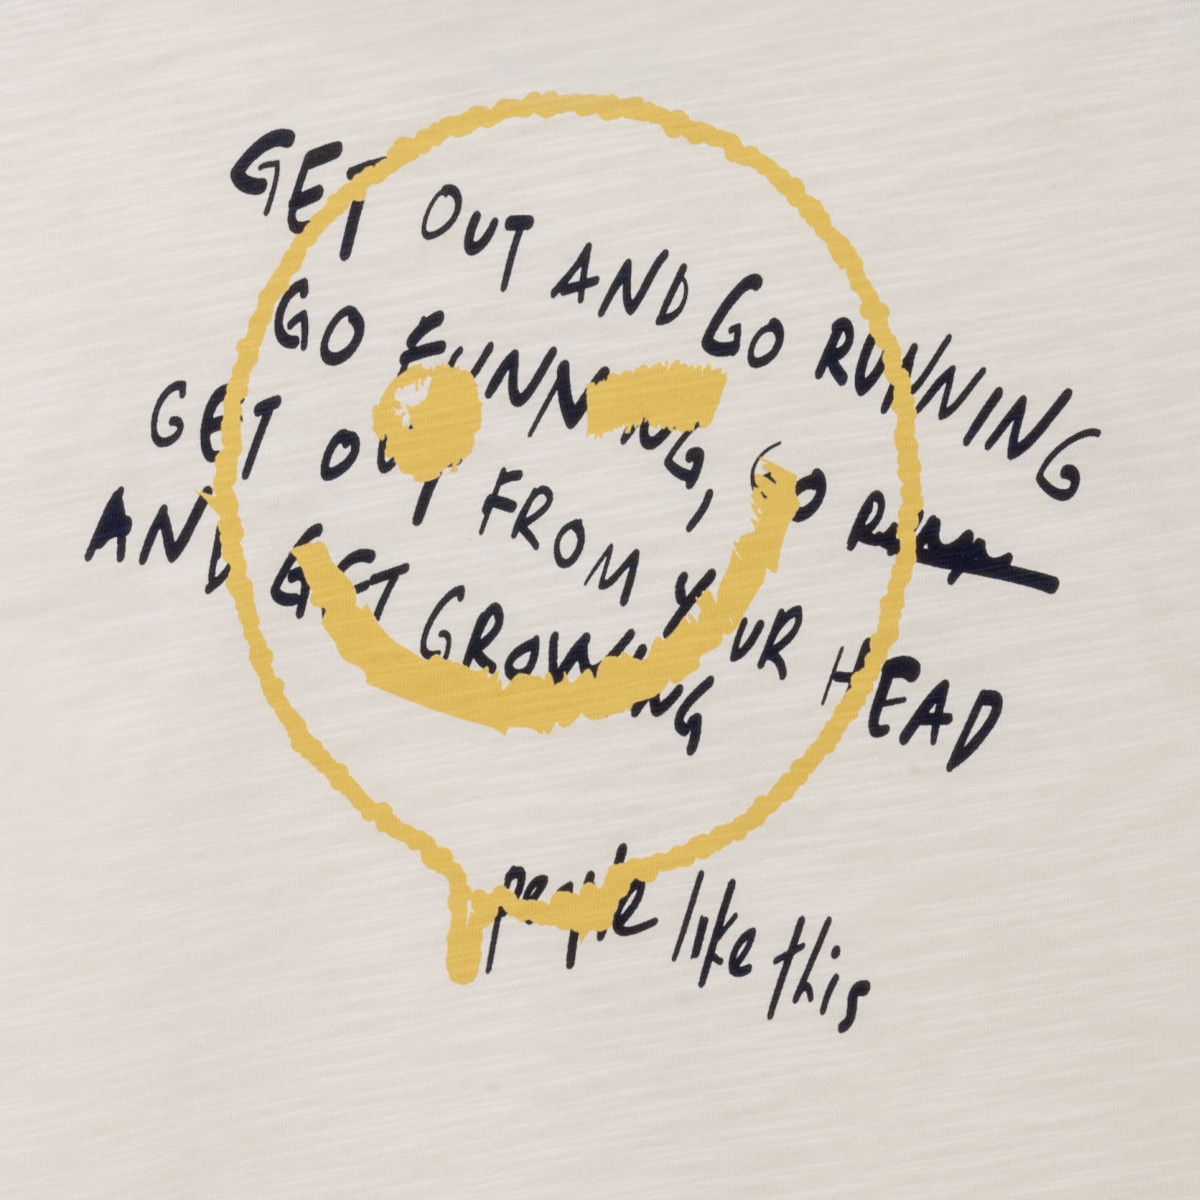 GET OUT AND GO RUNNING
GO FUNNING, GO
GET OUT FROM YOUR HEAD
AND GET GROWING
people like this